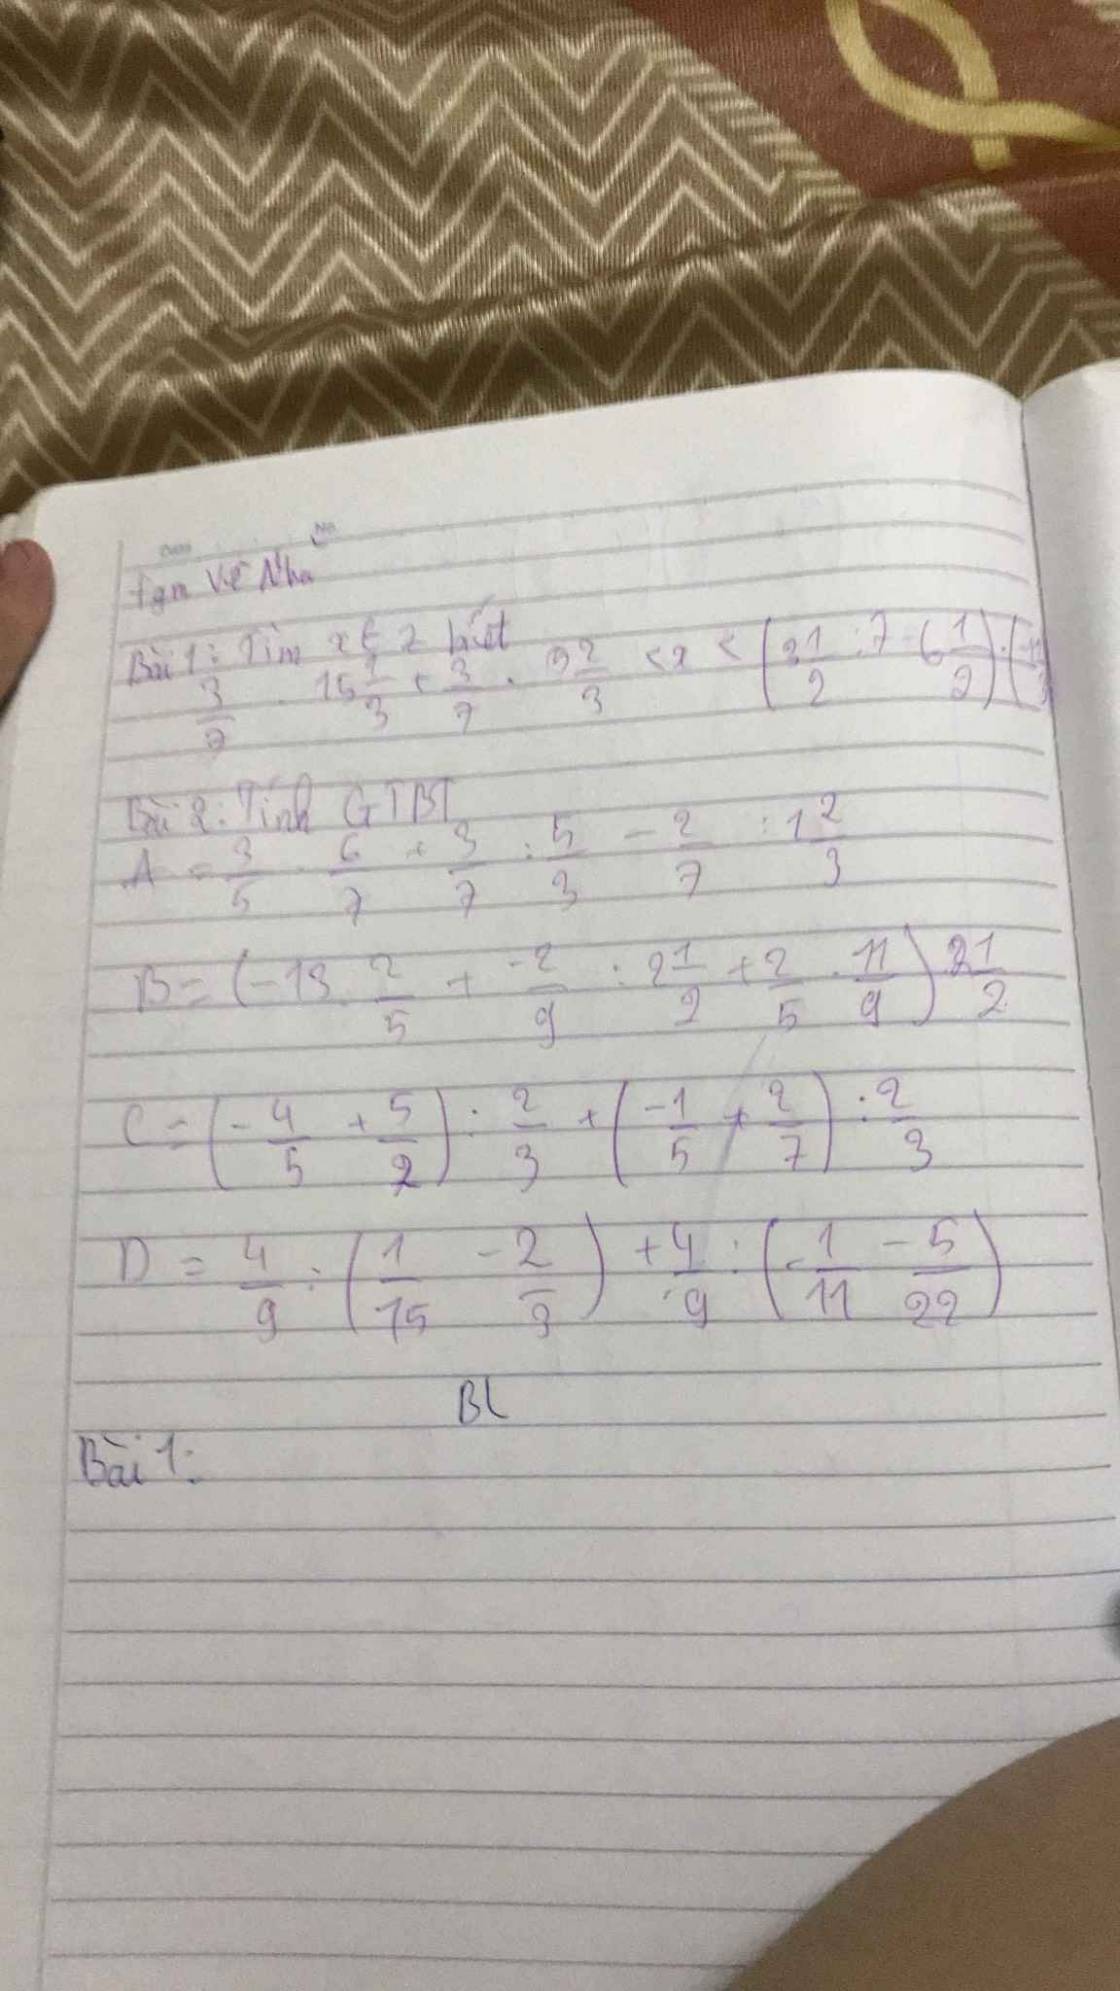 Về Nhà
Bài 1: Tìm x ∈ Z biết
3/7 . 15 1/3 + 3/7 . 5 2/3 < x < (3 1/2 : 7 - 6 1/2) .
Bài 2: Tính GTBT
A = 3/5 . 6/7 + 3/7 : 5/3 - 2/7 : 1 2/3
B = (-13 . 2/5 + -2/9 : 2 1/2 + 2/5 . 11/9) . 2 1/2
C = (-4/5 + 5/2) : 2/3 + (-1/5 + 2/7) : 2/3
D = 4/9 : (1/15 - 2/3) + 4/9 : (-1/11 - 5/22)
BL
Bài 1: